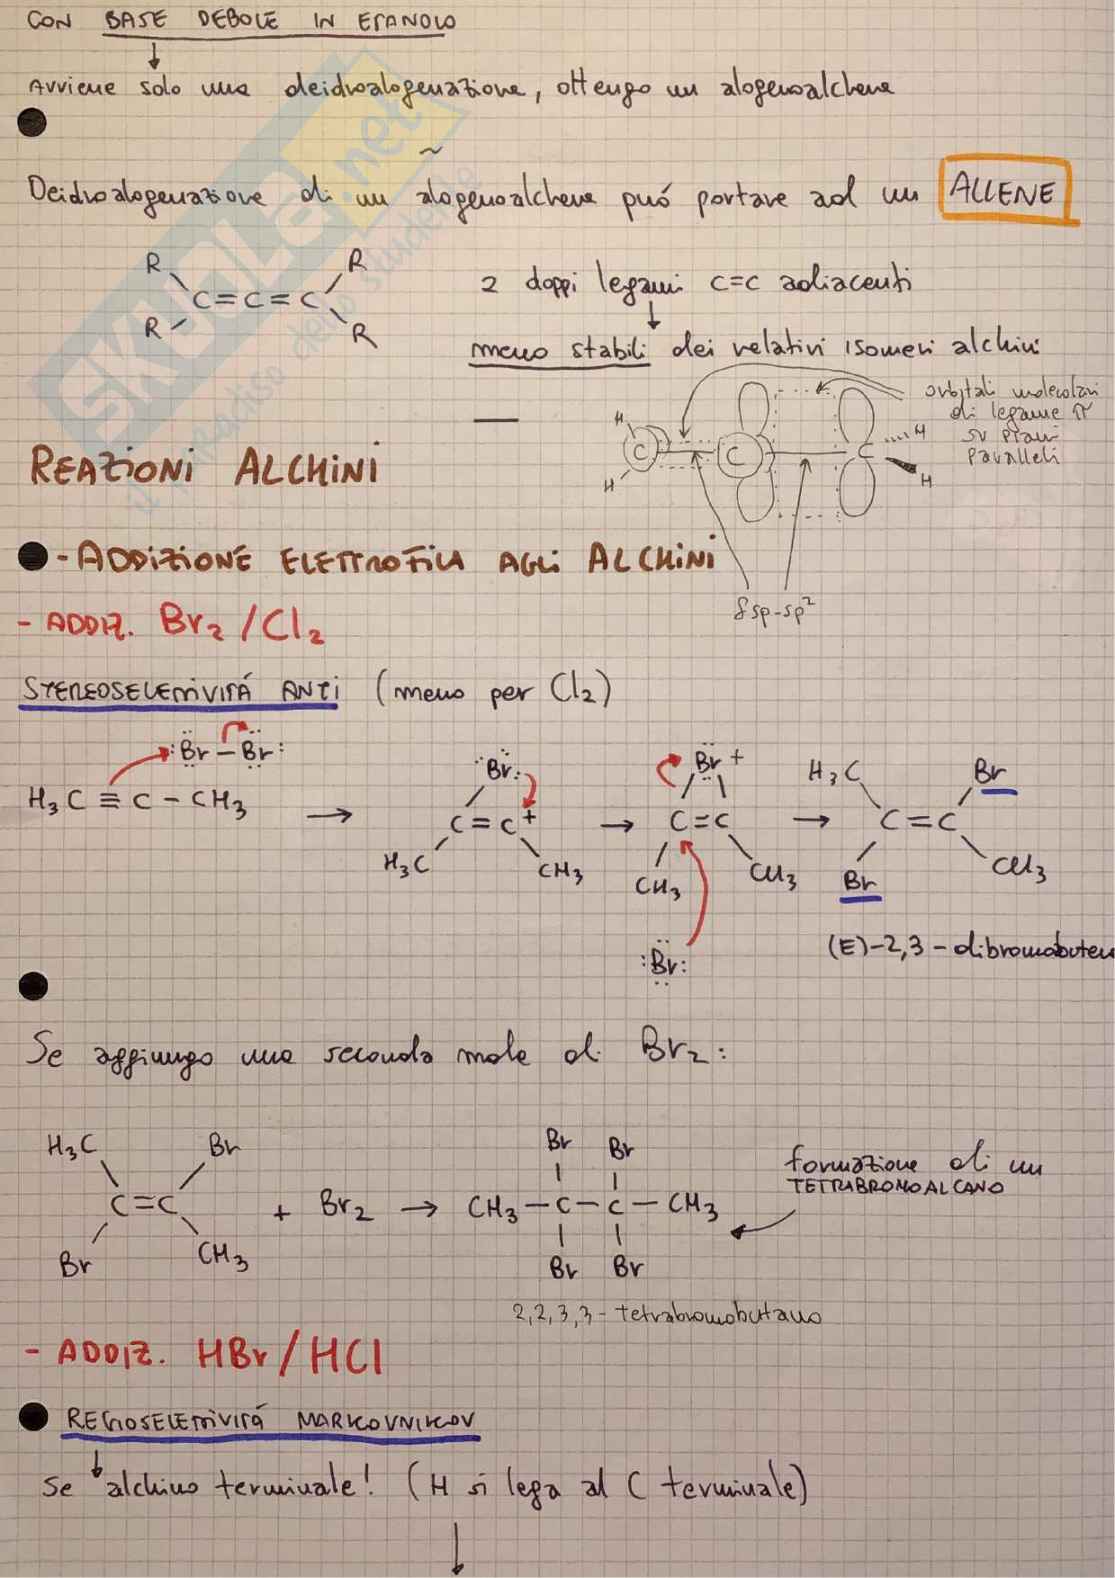 CON BASE DEBOLE IN ETANOLO
Avviene solo una deidroalogenazione, ottengo un alogenoalchene
Deidroalogenazione di un alogenoalchene puó portare ad un ALLENE
R R
C=C=C
R R
2 doppi legami C=C adiacenti
meno stabili dei relativi isomeri alchini
orbitali molecolari
di legame π
su piani
paralleli
H
C C C H
H H
δsp-sp²
REAZIONI ALCHINI
- ADDIZIONE ELETTROFILA AGLI ALCHINI
- ADDIZ. Br₂/Cl₂
STEREOSELETTIVITÁ ANTI (meno per Cl₂)
:Br-Br:
H₃C≡C-CH₃
Br:
C=C+
H₃C CH₃
Br+
C=C
CH₃ CH₃
:Br:
H₃C Br
C=C
Br CH₃
(E)-2,3-dibromobuten
Se aggiungo una seconda mole di Br₂:
H₃C Br
C=C + Br₂ →
Br CH₃
Br Br
CH₃-C-C-CH₃
Br Br
formazione di un
TETRABROMOALCANO
2,2,3,3-tetrabromobutano
- ADDIZ. HBr/HCl
REGIOSELETTIVITÁ MARKOVNIKOV
Se alchino terminale! (H si lega al C terminale)
SKUOLA.net
il paradiso dello studente